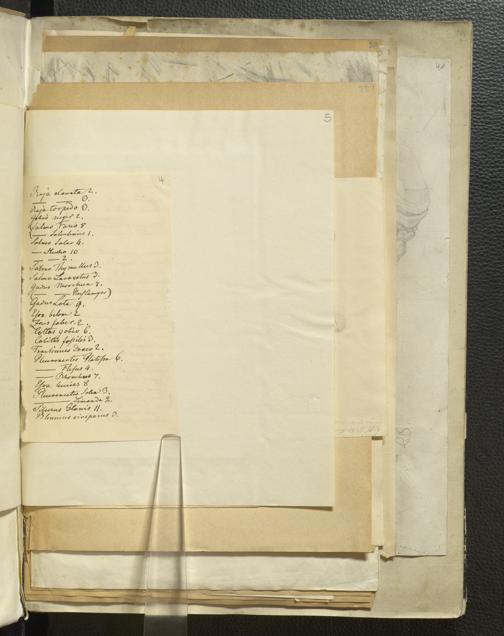 5
4
Raja clavata 2.
— — 0.
Raja torpedo 0.
Gobio niger 2.
Salmo Fario 8
— Salvelinus 1.
Salmo Salar 4.
— Hucho 10
— — 2.
Salmo Thymallus 3.
Salmo Lavaretus 3.
Gadus Morrhua 8.
Gadus Lota 9.
Esox belone 2
Zeus faber 2.
Cottus gobio 6.
Cobitis fossilis 3.
Trachinus draco 2.
Pleuronectes Platessa 6.
— Flesus 4.
— Rhombus 7.
Esox lucius 8
Pleuronectes Solea 3.
— Limanda 2.
Silurus Glanis 11.
Blennius viviparus 3.